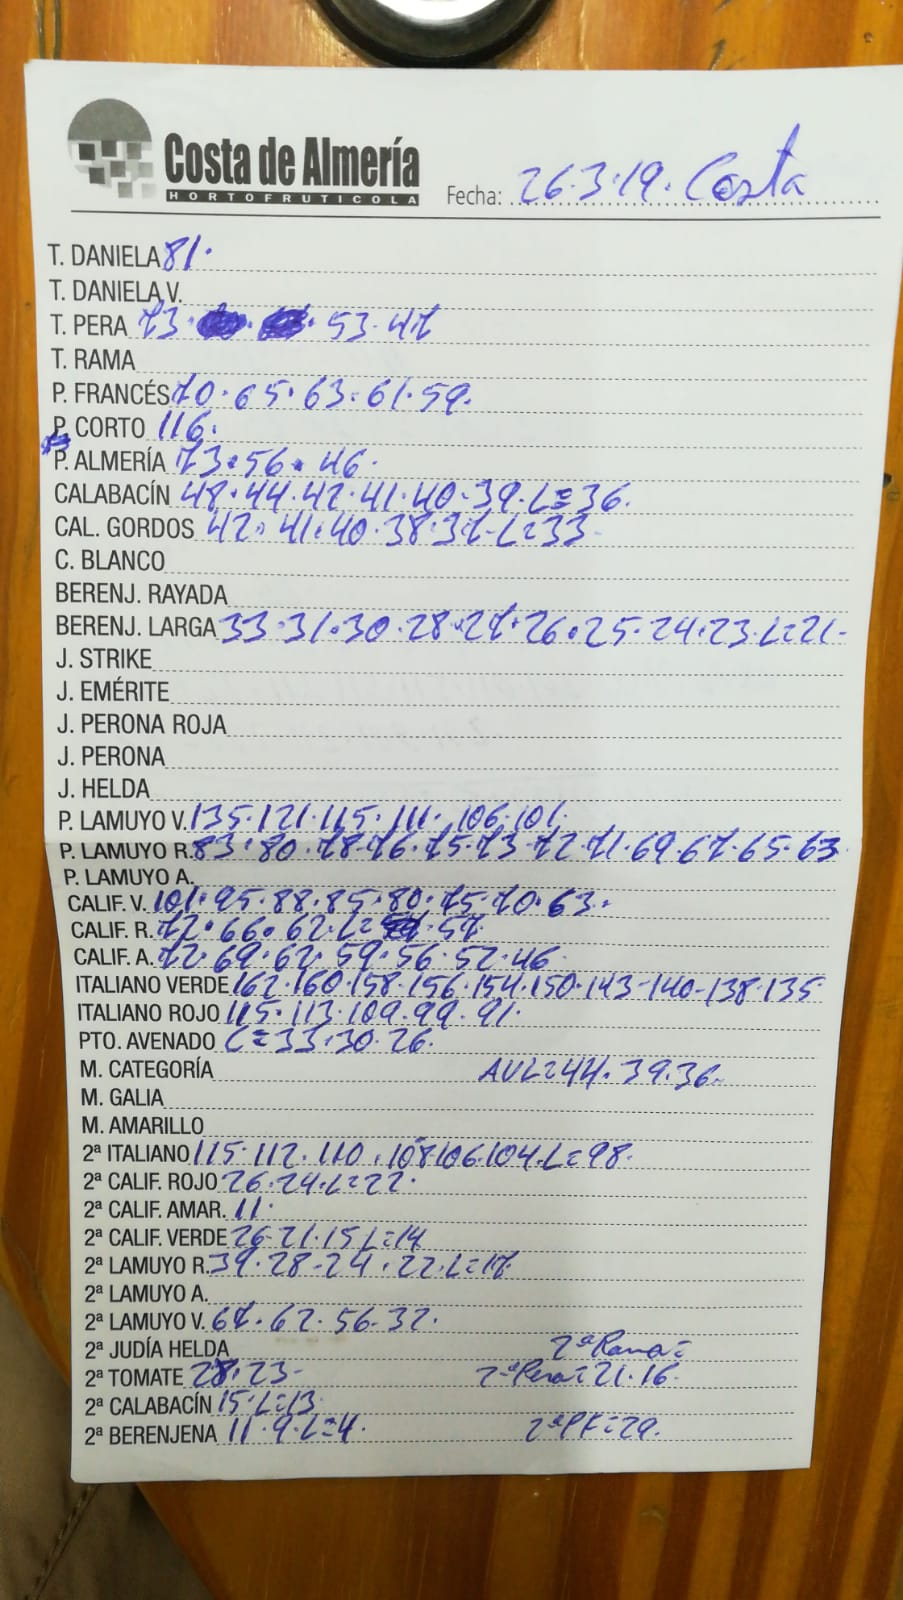 Costa de Almería
HORTOFRUTICOLA
Fecha: 26.3.19. Costa
T. DANIELA 81.
T. DANIELA V.
T. PERA 73. 53. 47
T. RAMA
P. FRANCÉS 70.65.63.61.59.
P. CORTO 116.
P. ALMERÍA 73.56.46.
CALABACÍN 48.44.42.41.40.39.L=36.
CAL. GORDOS 42.41.40.38.37-L=33-
C. BLANCO
BERENJ. RAYADA
BERENJ. LARGA 33.31.30.28.27.26.25.24.23.L=21-
J. STRIKE
J. EMÉRITE
J. PERONA ROJA
J. PERONA
J. HELDA
P. LAMUYO V. 135.121.115.111.106.101.
P. LAMUYO R. 83.80.78.76.75.73.72.71.69.67.65.63
P. LAMUYO A.
CALIF. V. 101.95.88.85.80.75.70.63.
CALIF. R. 72.66.62.L= 57.
CALIF. A. 72.69.62.59.56.52.46
ITALIANO VERDE 162.160.158.156.154.150.143-140-138.135
ITALIANO ROJO 115.113.109.99.91.
PTO. AVENADO L=33.30.26.
M. CATEGORÍA AVL=44.39.36.
M. GALIA
M. AMARILLO
2ª ITALIANO 115.112.110.108.106.104.L=98.
2ª CALIF. ROJO 26.24.L=22.
2ª CALIF. AMAR. 11.
2ª CALIF. VERDE 26-21.15 L=14
2ª LAMUYO R. 39.28-24.22.L=17
2ª LAMUYO A.
2ª LAMUYO V. 67.62.56.32.
2ª JUDÍA HELDA 2ªRama=
2ª TOMATE 28.23- 2ªPera=21.16.
2ª CALABACÍN 15.L=13
2ª BERENJENA 11.9.L=4. 2ªPF=29.